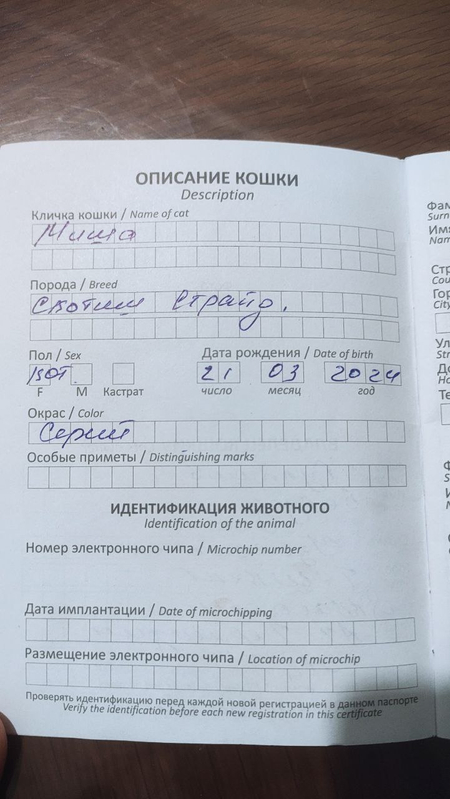 ОПИСАНИЕ КОШКИ
Description
Кличка кошки / Name of cat
Миша
Порода / Breed
Скотиш Страйд.
Пол / Sex
Дата рождения / Date of birth
кот. 21 03 2024
F M Кастрат число месяц год
Окрас / Color
Серый
Особые приметы / Distinguishing marks
ИДЕНТИФИКАЦИЯ ЖИВОТНОГО
Identification of the animal
Номер электронного чипа / Microchip number
Дата имплантации / Date of microchipping
Размещение электронного чипа / Location of microchip
Проверять идентификацию перед каждой новой регистрацией в данном паспорте
Verify the identification before each new registration in this certificate